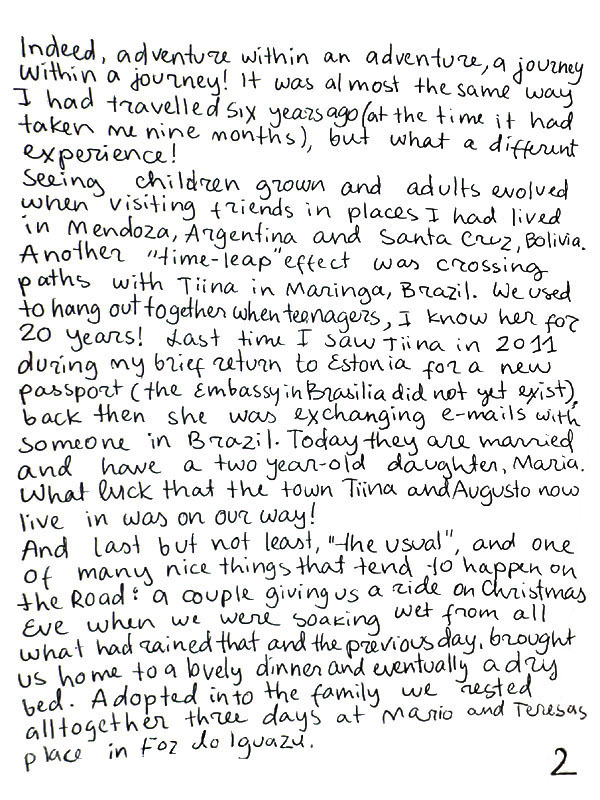 Indeed, adventure within an adventure, a journey
within a journey! It was almost the same way
I had travelled six years ago (at the time it had
taken me nine months), but what a different
experience!
Seeing children grown and adults evolved
when visiting friends in places I had lived
in Mendoza, Argentina and Santa Cruz, Bolivia.
Another "time-leap" effect was crossing
paths with Tiina in Maringa, Brazil. We used
to hang out together when teenagers, I know her for
20 years! Last time I saw Tiina in 2011
during my brief return to Estonia for a new
passport (the Embassy in Brasilia did not yet exist),
back then she was exchanging e-mails with
someone in Brazil. Today they are married
and have a two year-old daughter, Maria.
What luck that the town Tiina and Augusto now
live in was on our way!
And last but not least, "the usual", and one
of many nice things that tend to happen on
the Road: a couple giving us a ride on Christmas
Eve when we were soaking wet from all
what had rained that and the previous day, brought
us home to a lovely dinner and eventually a dry
bed. Adopted into the family we rested
alltogether three days at Mario and Teresas
place in Foz do Iguazu.
2